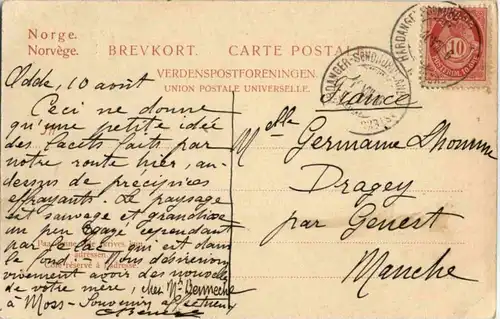 Norge.
Norvège.
BREVKORT. CARTE POSTALE
VERDENSPOSTFORENINGEN.
UNION POSTALE UNIVERSELLE.
10
Odde, 10 août
Ceci ne donne
qu'une petite idée
des lacets faits par
notre route hier, au-
dessus de précipices
effrayants. Le paysage
est sauvage et grandiose
un peu égayé cependant
par le lac qui est dans
le fond. Nous désirerions
vivement avoir des nouvelles
de votre mère, chez
à Moss. Souvenir affectueux
adressen.
Côté réservé à l'adresse.
France
Melle Germaine Lhomme
Dragey
par Genest
Manche